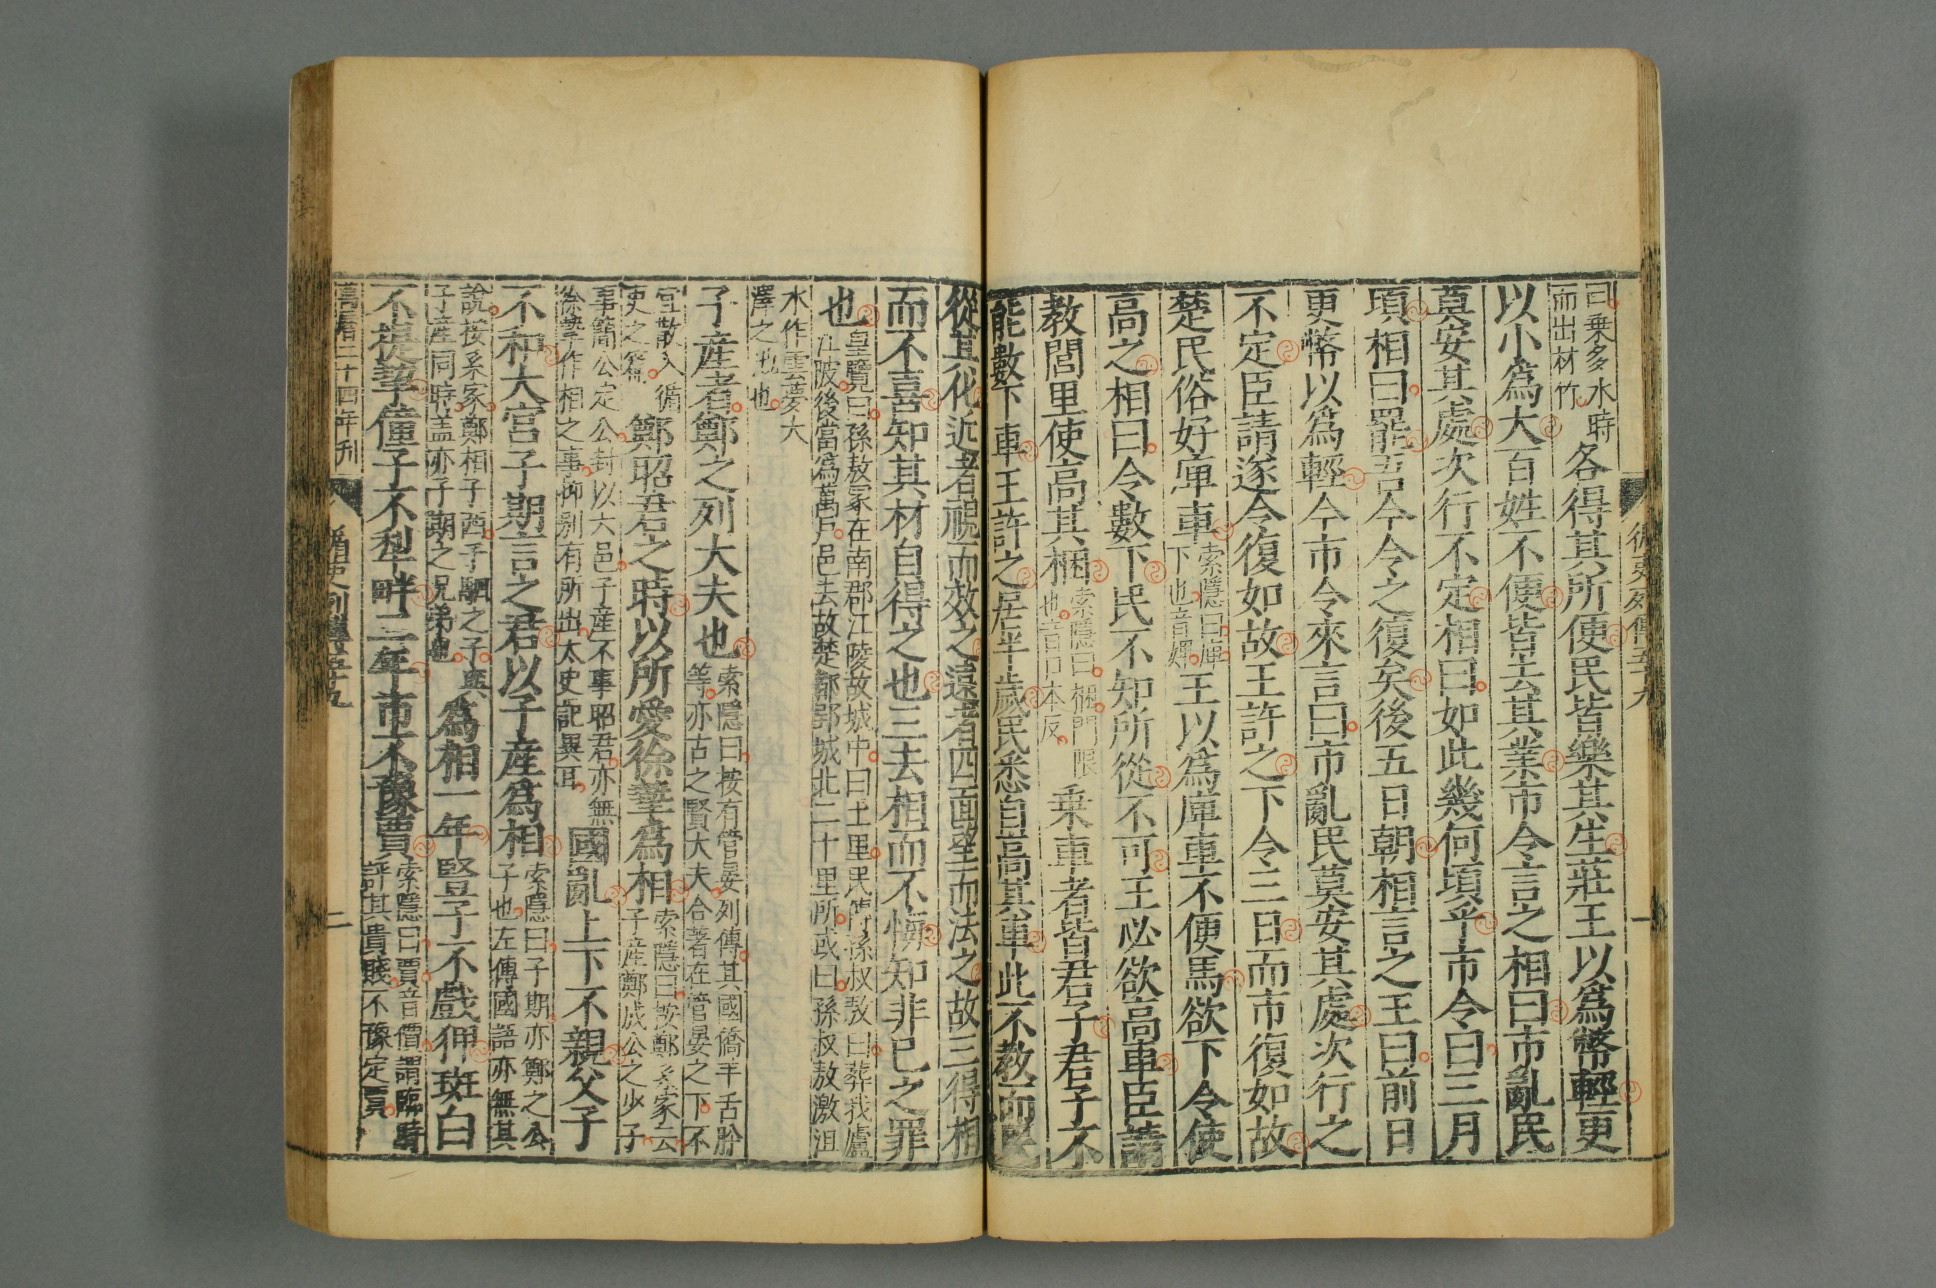 曰乗多水時
而出材竹
各得其所便民皆樂其生莊王以爲幣輕更
以小爲大百姓不便皆去其業市令言之相曰市亂民
莫安其處次行不定相曰如此幾何頃乎市令曰三月
頃相曰罷吾今令之復矣後五日朝相言之王曰前日
更幣以爲輕今市令來言曰市亂民莫安其處次行之
不定臣請遂令復如故王許之下令三日而市復如故
楚民俗好庳車
索隱曰庳
下也音婢
王以爲庳車不便馬欲下令使
高之相曰令數下民不知所從不可王必欲高車臣請
教閭里使高其梱
索隱曰梱門限
也音口本反
乗車者皆君子君子不
能數下車王許之居半歲民悉自高其車此不教而民
循吏列傳五十九
一
從其化近者視而效之遠者四面望而法之故三得相
而不喜知其材自得之也三去相而不悔知非已之罪
也
皇覽曰孫叔敖冡在南郡江陵故城中白土里民傳孫叔敖曰葬我廬
江陂後當爲萬戶邑去故楚都郢城北三十里所或曰孫叔敖激沮
水作雲夢大
澤之池也
子産者鄭之列大夫也
索隱曰按有管晏列傳其國僑羊舌肸
等亦古之賢大夫合著在管晏之下不
宜散入循
吏之篇
鄭昭君之時以所愛徐摯爲相
索隱曰按鄭系家云
子産鄭成公之少子
事簡公定公封以六邑子産不事昭君亦無
徐摯作相之事抑别有所出太史記異耳
國亂上下不親父子
不和大宫子期言之君以子産爲相
索隱曰子期亦鄭之公
子也左傳國語亦無其
說按系家鄭相子西子駟之子與
子産同時盖亦子期之兄弟也
爲相一年豎子不戲狎斑白
不提挈僮子不犁畔二年市不豫賈
索隱曰賈音價謂臨時
評其貴賤不豫定賈
萬曆二十四年刋
循吏列傳五十九
二